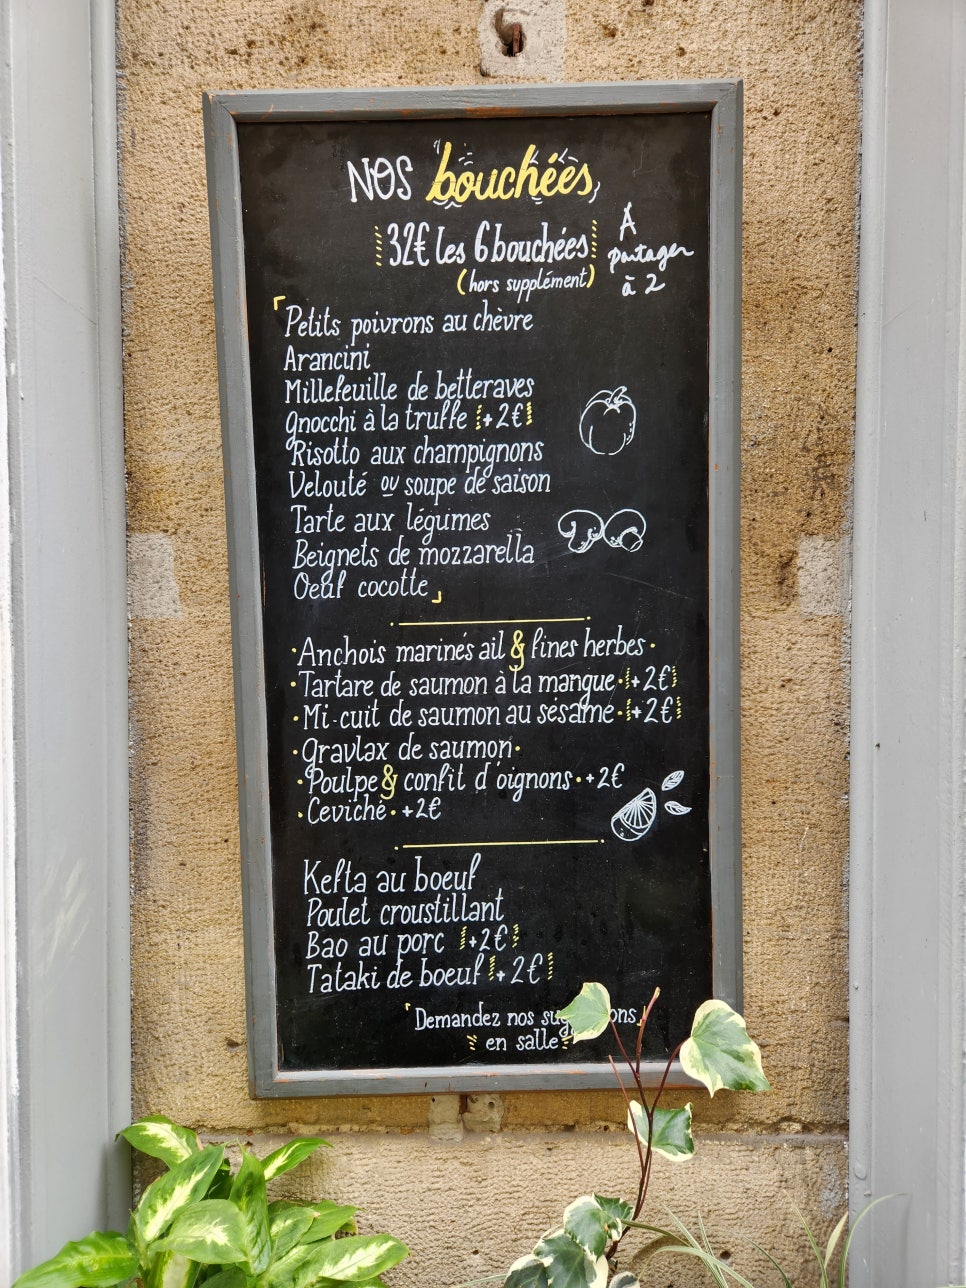 Nos bouchées
32€ les 6 bouchées
(hors supplément)
À
partager
à 2
Petits poivrons au chèvre
Arancini
Millefeuille de betteraves
Gnocchi à la truffe +2€
Risotto aux champignons
Velouté ou soupe de saison
Tarte aux légumes
Beignets de mozzarella
Oeuf cocotte
Anchois marinés ail & fines herbes
Tartare de saumon à la mangue +2€
Mi-cuit de saumon au sésame +2€
Gravlax de saumon
Poulpe & confit d'oignons +2€
Ceviche +2€
Kefta au boeuf
Poulet croustillant
Bao au porc +2€
Tataki de boeuf +2€
Demandez nos
en salle